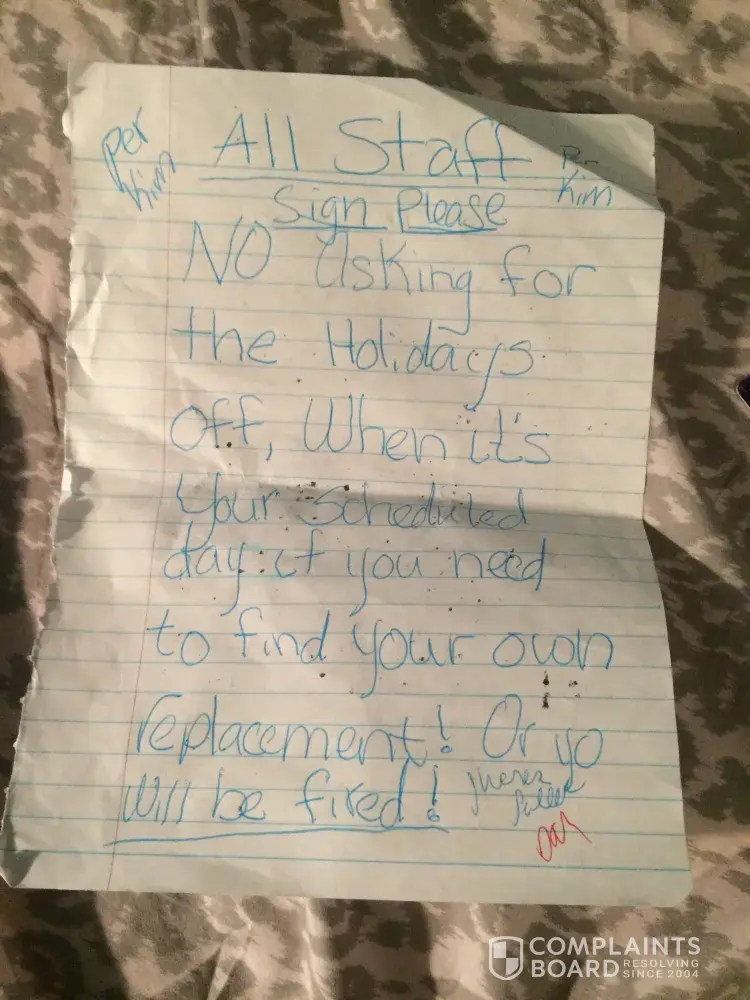 Per
Kim
All Staff
P-
Kim
Sign Please
NO Asking for
the Holidays
off, When it's
your Scheduled
day if you need
to find your own
replacement! Or yo
will be fired!
COMPLAINTS
BOARD RESOLVING
SINCE 2004